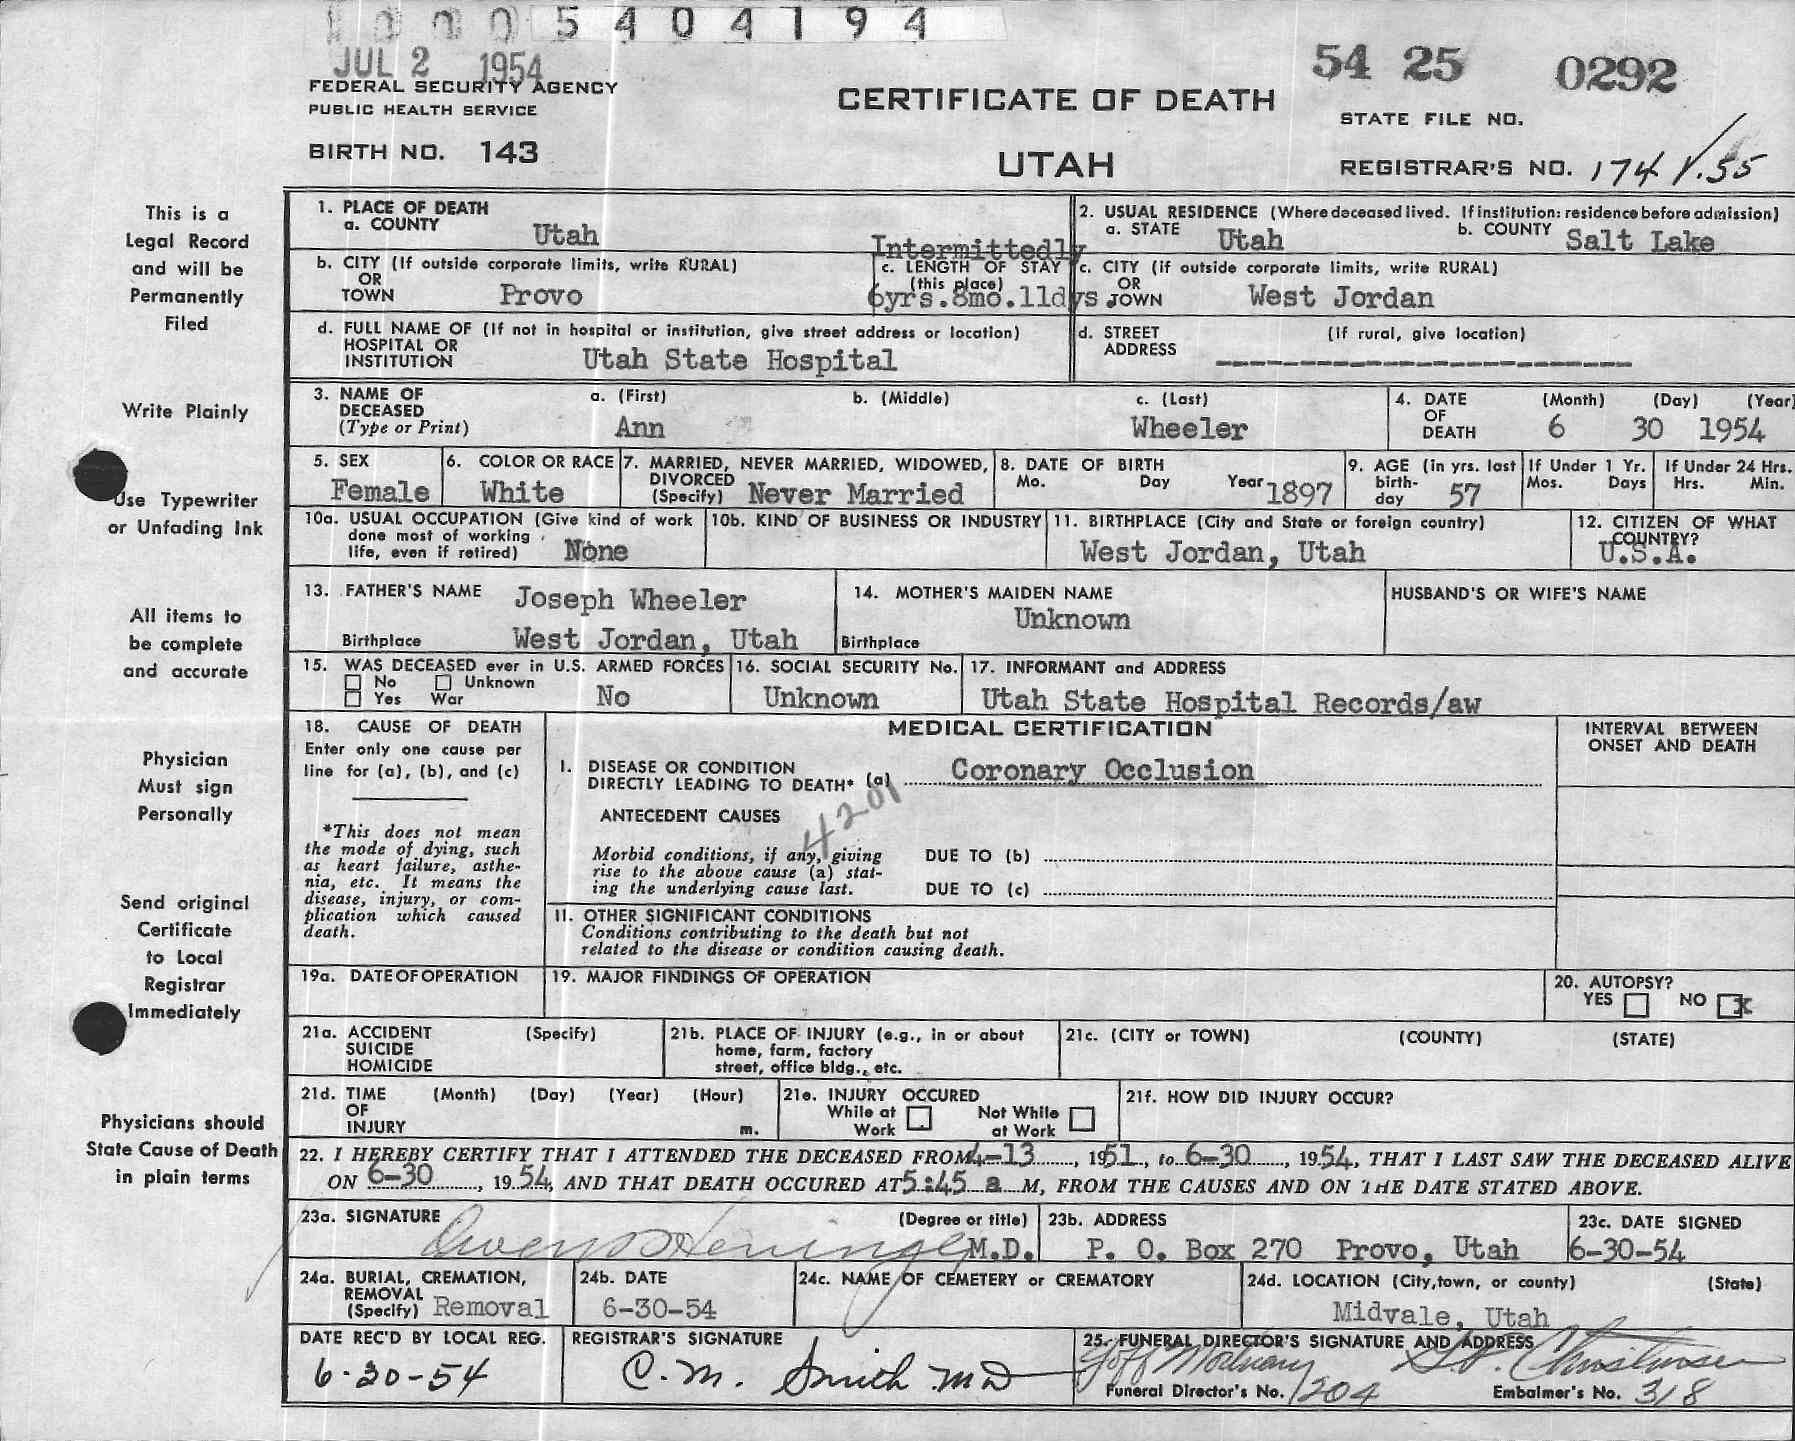 0005404194
JUL 2 1954
54 25 0292
FEDERAL SECURITY AGENCY
PUBLIC HEALTH SERVICE
CERTIFICATE OF DEATH
STATE FILE NO.
BIRTH NO. 143
UTAH
REGISTRAR'S NO. 174
This is a
Legal Record
and will be
Permanently
Filed
Write Plainly
Use Typewriter
or Unfading Ink
All items to
be complete
and accurate
Physician
Must sign
Personally
Send original
Certificate
to Local
Registrar
Immediately
Physicians should
State Cause of Death
in plain terms
1. PLACE OF DEATH
a. COUNTY Utah
2. USUAL RESIDENCE (Where deceased lived. If institution: residence before admission)
a. STATE Utah b. COUNTY Salt Lake
b. CITY (If outside corporate limits, write RURAL)
OR
TOWN Provo
Intermittedly
c. LENGTH OF STAY
(this place)
6yrs.8mo.11dys
c. CITY (if outside corporate limits, write RURAL)
OR
TOWN West Jordan
d. FULL NAME OF (If not in hospital or institution, give street address or location)
HOSPITAL OR
INSTITUTION Utah State Hospital
d. STREET (If rural, give location)
ADDRESS
3. NAME OF a. (First) b. (Middle) c. (Last)
DECEASED
(Type or Print) Ann Wheeler
4. DATE (Month) (Day) (Year)
OF
DEATH 6 30 1954
5. SEX
Female
6. COLOR OR RACE
White
7. MARRIED, NEVER MARRIED, WIDOWED,
DIVORCED
(Specify) Never Married
8. DATE OF BIRTH
Mo. Day Year 1897
9. AGE (in yrs. last
birth-
day 57
If Under 1 Yr.
Mos. Days
If Under 24 Hrs.
Hrs. Min.
10a. USUAL OCCUPATION (Give kind of work
done most of working
life, even if retired) None
10b. KIND OF BUSINESS OR INDUSTRY
11. BIRTHPLACE (City and State or foreign country)
West Jordan, Utah
12. CITIZEN OF WHAT
COUNTRY?
U.S.A.
13. FATHER'S NAME Joseph Wheeler
Birthplace West Jordan, Utah
14. MOTHER'S MAIDEN NAME
Unknown
Birthplace
HUSBAND'S OR WIFE'S NAME
15. WAS DECEASED ever in U.S. ARMED FORCES
No Unknown
Yes War No
16. SOCIAL SECURITY No.
Unknown
17. INFORMANT and ADDRESS
Utah State Hospital Records/aw
18. CAUSE OF DEATH
Enter only one cause per
line for (a), (b), and (c)
*This does not mean
the mode of dying, such
as heart failure, asthe-
nia, etc. It means the
disease, injury, or com-
plication which caused
death.
MEDICAL CERTIFICATION
INTERVAL BETWEEN
ONSET AND DEATH
I. DISEASE OR CONDITION
DIRECTLY LEADING TO DEATH* (a) Coronary Occlusion
4201
ANTECEDENT CAUSES
Morbid conditions, if any, giving
rise to the above cause (a) stat-
ing the underlying cause last.
DUE TO (b)
DUE TO (c)
II. OTHER SIGNIFICANT CONDITIONS
Conditions contributing to the death but not
related to the disease or condition causing death.
19a. DATE OF OPERATION
19. MAJOR FINDINGS OF OPERATION
20. AUTOPSY?
YES NO x
21a. ACCIDENT (Specify)
SUICIDE
HOMICIDE
21b. PLACE OF INJURY (e.g., in or about
home, farm, factory
street, office bldg., etc.
21c. (CITY or TOWN) (COUNTY) (STATE)
21d. TIME (Month) (Day) (Year) (Hour)
OF
INJURY m.
21e. INJURY OCCURED
While at Work Not While at Work
21f. HOW DID INJURY OCCUR?
22. I HEREBY CERTIFY THAT I ATTENDED THE DECEASED FROM 4-13, 1951, to 6-30, 1954, THAT I LAST SAW THE DECEASED ALIVE
ON 6-30, 1954, AND THAT DEATH OCCURED AT 5:45 a M, FROM THE CAUSES AND ON THE DATE STATED ABOVE.
23a. SIGNATURE (Degree or title)
M.D.
23b. ADDRESS
P. O. Box 270 Provo, Utah
23c. DATE SIGNED
6-30-54
24a. BURIAL, CREMATION,
REMOVAL
(Specify) Removal
24b. DATE
6-30-54
24c. NAME OF CEMETERY or CREMATORY
24d. LOCATION (City, town, or county) (State)
Midvale, Utah
DATE REC'D BY LOCAL REG.
6-30-54
REGISTRAR'S SIGNATURE
C. M. Smith MD
25. FUNERAL DIRECTOR'S SIGNATURE AND ADDRESS
Goff Mortuary Christensen
Funeral Director's No. 1204 Embalmer's No. 318